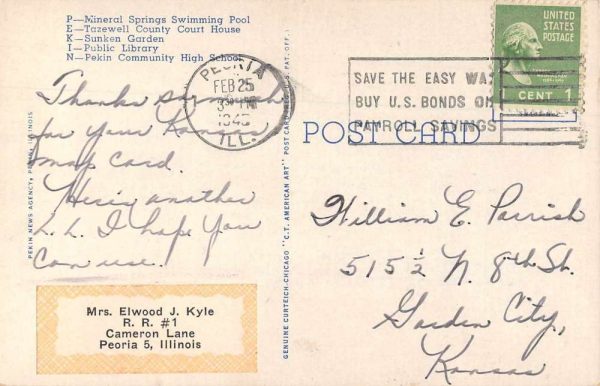 P—Mineral Springs Swimming Pool
E—Tazewell County Court House
K—Sunken Garden
I—Public Library
N—Pekin Community High School
PEORIA
FEB 25
3 30 PM
ILL.
SAVE THE EASY WAY
BUY U.S. BONDS ON
PAYROLL SAVINGS
UNITED
STATES
POSTAGE
1 CENT 1
POST CARD
Thanks so much
for your Kansas
map card.
Here's another
L.L. I hope you
can use!
PEKIN NEWS AGENCY, PEKIN, ILLINOIS
GENUINE CURTEICH-CHICAGO "C.T. AMERICAN ART" POST CARD (REG. U.S. PAT. OFF.)
William E. Parrish
515 1/2 N. 8th St.
Garden City,
Kansas
Mrs. Elwood J. Kyle
R. R. #1
Cameron Lane
Peoria 5, Illinois